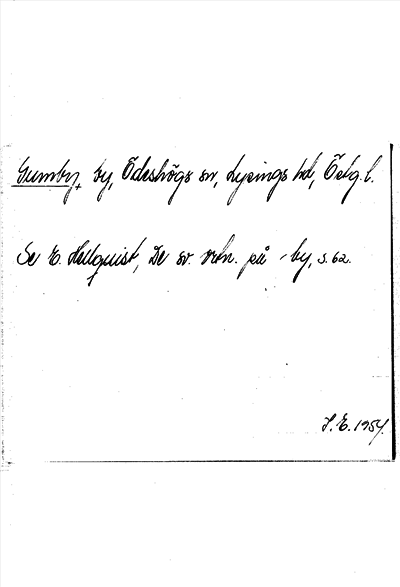 Gumby, by, Ödeshögs sn, Lysings hd, Östg.l.
Se E. Hellquist, De sv. ortn. på -by, s. 62.
J.E. 1954.